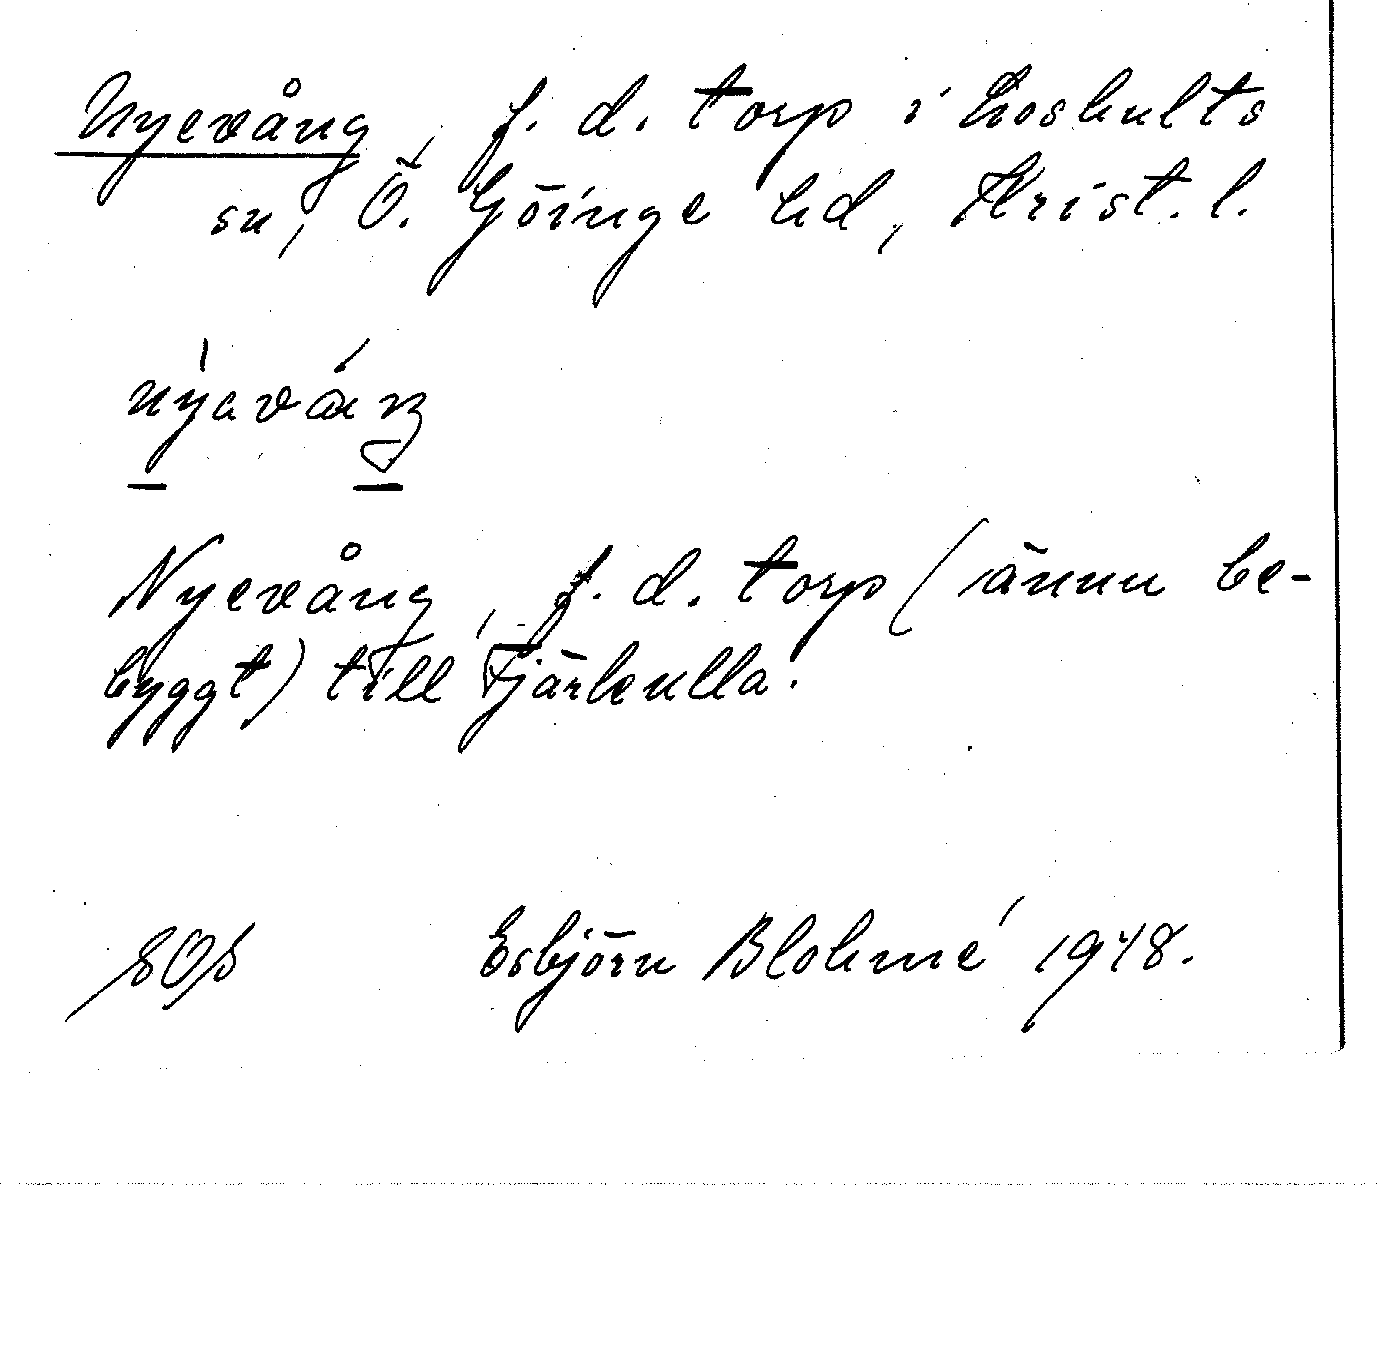 Nyevång, f. d. torp i Loshults
sn, Ö. Göinge hd, Krist. l.
Nyevång, f. d. torp (ännu be-
byggt) till Fjärkulla.
Esbjörn Blohmé 1948.